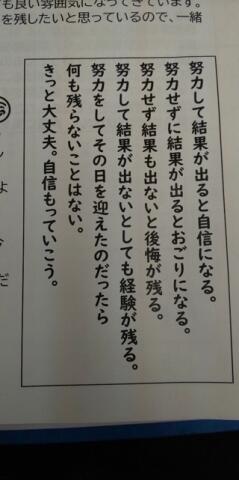 も良い雰囲気になってきています。
を残したいと思っているので、一緒
努力して結果が出ると自信になる。
努力せずに結果が出るとおごりになる。
努力せず結果も出ないと後悔が残る。
努力して結果が出ないとしても経験が残る。
努力をしてその日を迎えたのだったら
何も残らないことはない。
きっと大丈夫。自信もっていこう。